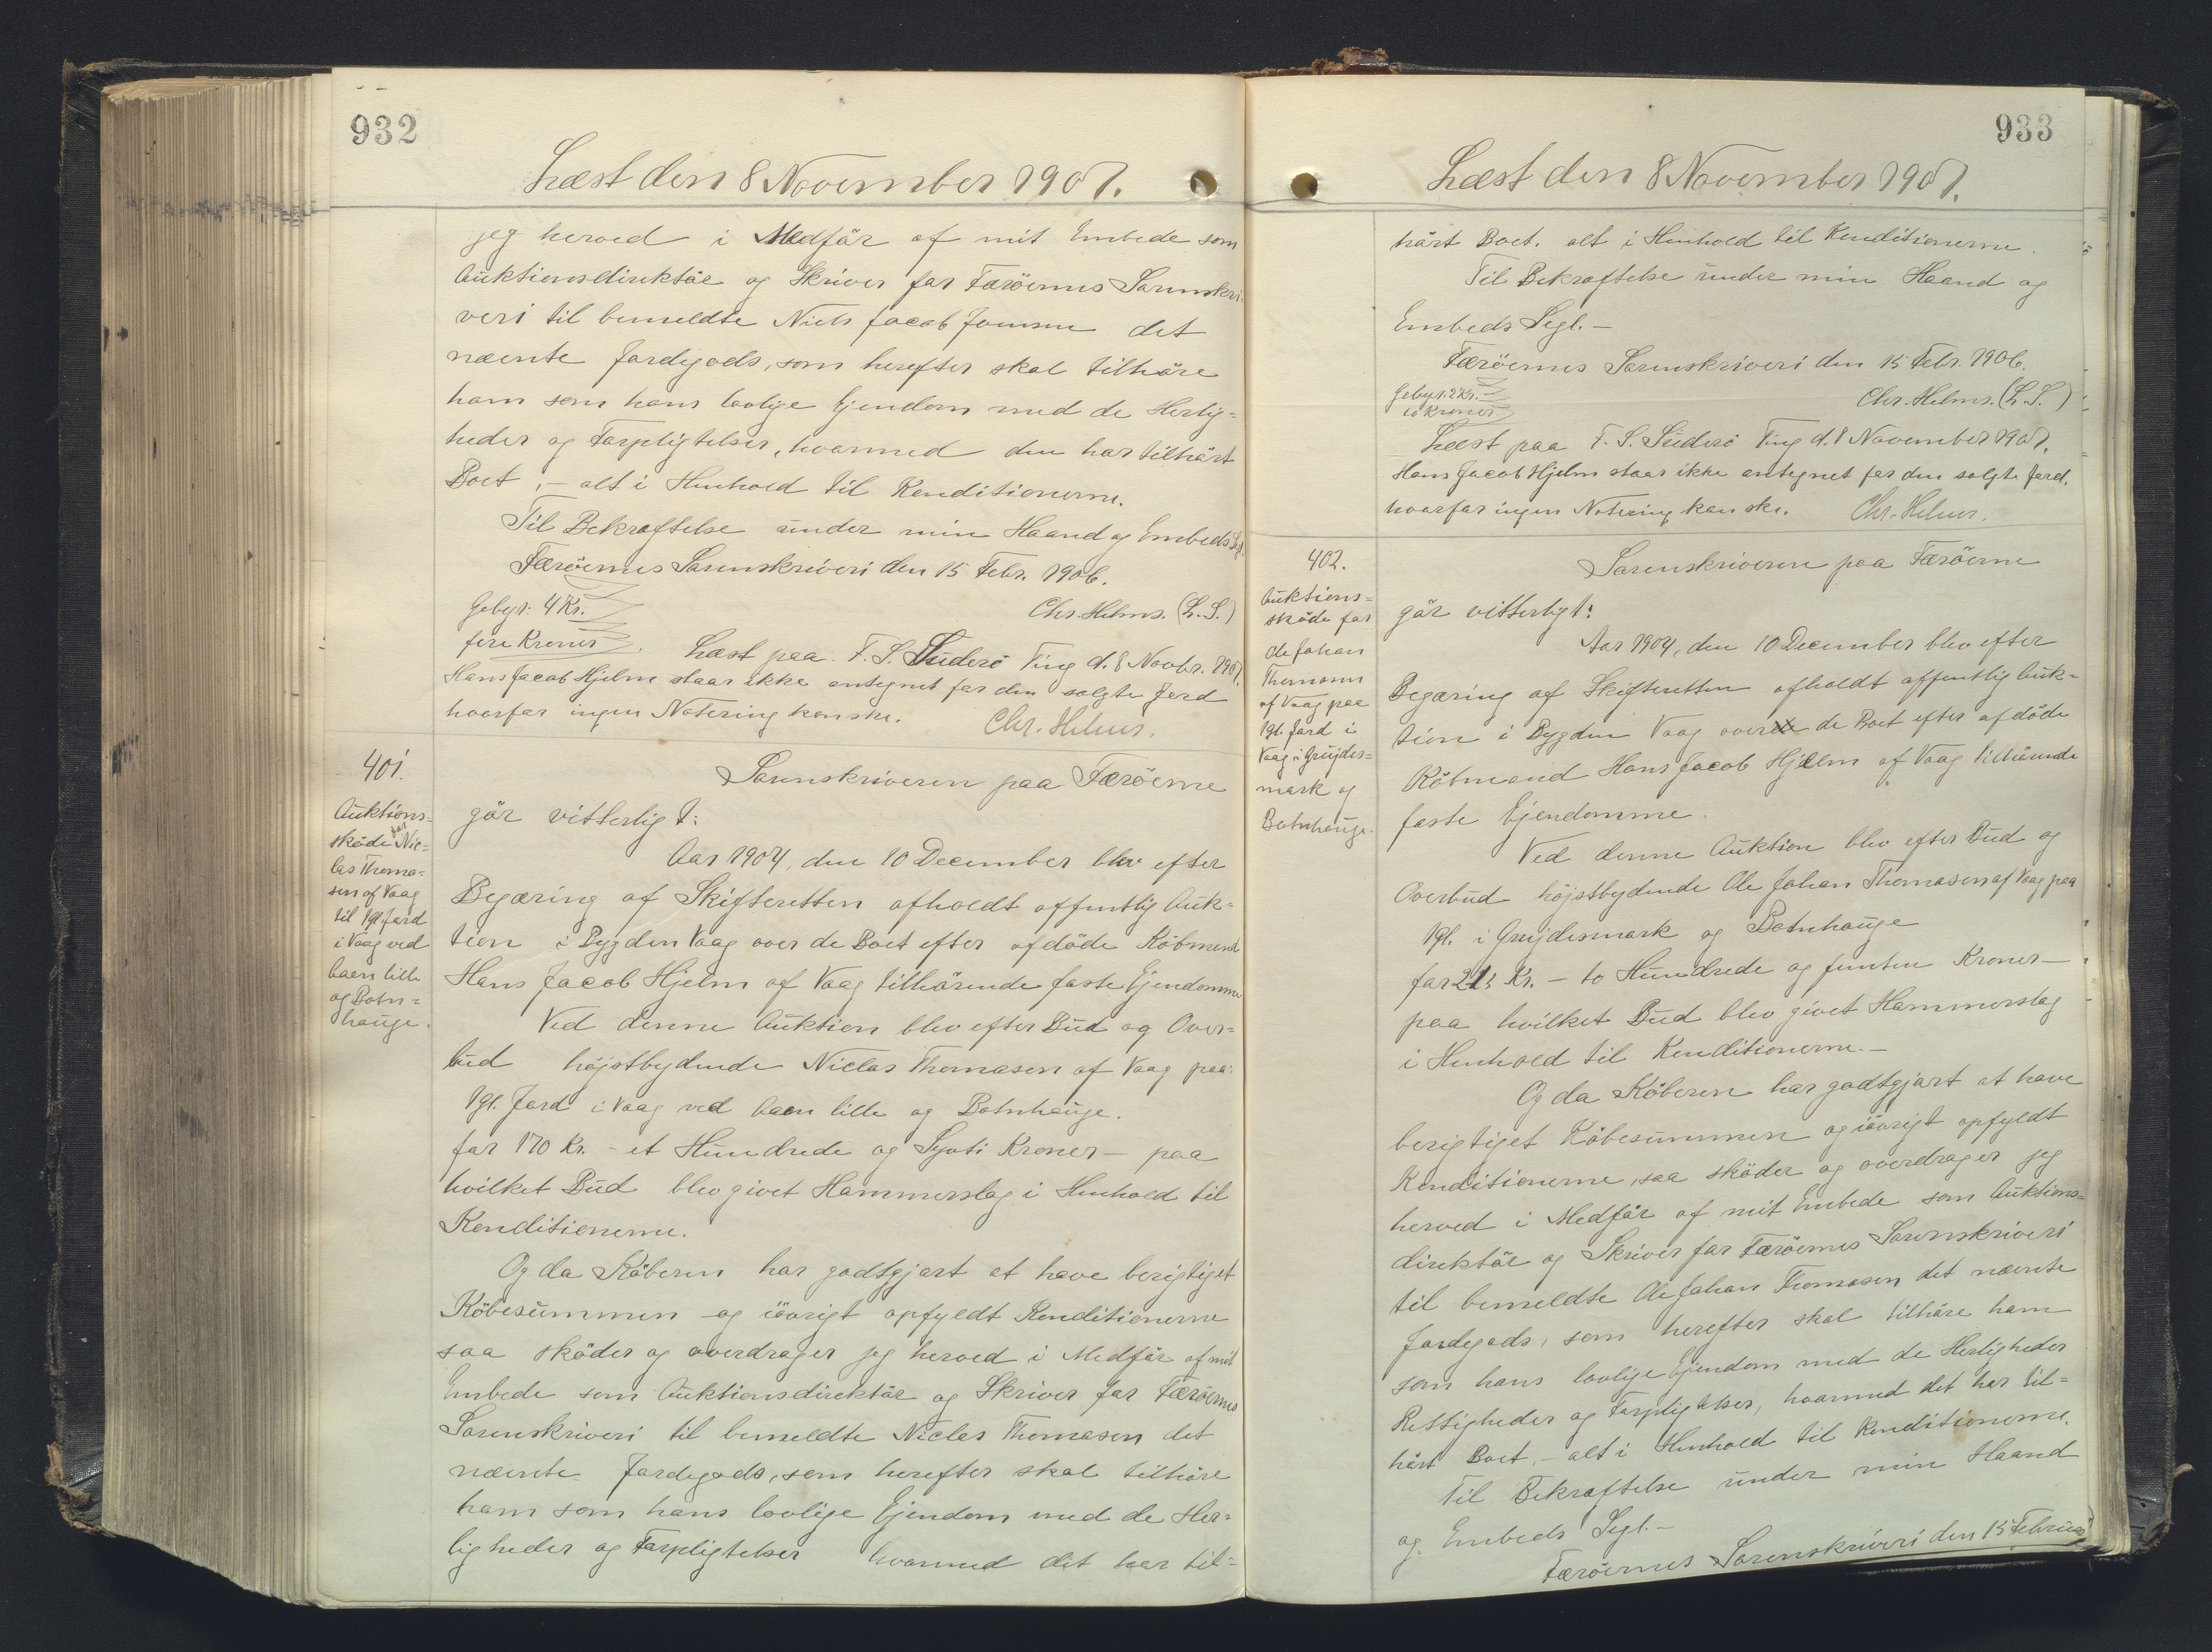 932
Læst den 8 November 1907.
jeg herved i Medför af mit Embede som
Auktionsdirektör og Skriver for Færöernes Sorenskri-
veri til bemeldte Niels Jacob Joensen det
nævnte Jordegods, som herefter skal tilhöre
ham som hans lovlige Ejendom med de Herlig=
heder og Forpligtelser, hvormed den har tilhört
Boet, – alt i Henhold til Konditionerne.
Til Bekræftelse under min Haand og Embeds Segl.
Færöernes Sorenskriveri den 15 Febr. 1906.
Gebyr: 4 Kr.
fire Kroner
Chr. Helms. (L. S.)
Læst paa F. S. Suderö Ting d. 8 Novbr. 1907.
Hans Jacob Hjelm staar ikke antegnet for den solgte Jord
hvorfor ingen Notering kan ske. Chr. Helms.
401.
Auktions=
sköde for Nic=
las Thoma=
sen af Vaag
til 1 gl. Jord
i Vaag ved
Aaen lille
og Botn=
hauge.
Sorenskriveren paa Færöerne
gör vitterligt:
Aar 1904, den 10 December blev efter
Begæring af Skifteretten afholdt offentlig Auk=
tion i Bygden Vaag over de Boet efter afdöde Köbmand
Hans Jacob Hjelm af Vaag tilhörende faste Ejendomme
Ved denne Auktion blev efter Bud og Over=
bud höjstbydende Niclas Thomasen af Vaag paa:
1 gl. Jord i Vaag ved Aaen lille og Botnhauge.
for 170 Kr. – et Hundrede og Syvti Kroner – paa
hvilket Bud blev givet Hammerslag i Henhold til
Konditionerne.
Og da Köberen har godtgjort at have berigtiget
Köbesummen og iövrigt opfyldt Konditionerne
saa sköder og overdrager jeg herved i Medför af mit
Embede som Auktionsdirektör og Skriver for Færöernes
Sorenskriveri til bemeldte Niclas Thomasen det
nævnte Jordegods, som herefter skal tilhöre
ham som hans lovlige Ejendom med de Her=
ligheder og Forpligtelser hvormed det har til=
933
Læst den 8 November 1907.
hört Boet. alt i Henhold til Konditionerne.
Til Bekræftelse under min Haand og
Embeds Segl. –
Færöernes Sorenskriveri den 15 Febr. 1906.
Gebyr. 2 Kr. –
to Kroner
Chr. Helms. (L. S.)
Læst paa F. S. Suderö Ting d. 8 November 1907.
Hans Jacob Hjelm staar ikke antegnet for den solgte Jord,
hvorfor ingen Notering kan ske. Chr. Helms.
402.
Auktions=
sköde for
Ole Johan
Thomasen
af Vaag paa
1 gl. Jord i
Vaag i Grujdes=
mark og
Botnhauge.
Sorenskriveren paa Færöerne
gör vitterligt:
Aar 1904, den 10 December blev efter
Begæring af Skifteretten afholdt offentlig Auk=
tion i Bygden Vaag over de Boet efter afdöde
Köbmand Hans Jacob Hjelm af Vaag tilhörende
faste Ejendomme.
Ved denne Auktion blev efter Bud og
Overbud höjstbydende Ole Johan Thomasen af Vaag paa
1 gl. i Grujdesmark og Botnhauge
for 215 Kr. – to Hundrede og femten Kroner –
paa hvilket Bud blev givet Hammerslag
i Henhold til Konditionerne. –
Og da Köberen har godtgjort at have
berigtiget Köbesummen og iövrigt opfyldt
Konditionerne, saa sköder og overdrager jeg
herved i Medför af mit Embede som Auktions=
direktör og Skriver for Færöernes Sorenskriveri
til bemeldte Ole Johan Thomasen det nævnte
Jordegods, som herefter skal tilhöre ham
som hans lovlige Ejendom med de Herligheder
Rettigheder og Forpligtelser, hvormed det har til=
hört Boet, – alt i Henhold til Konditionerne.
Til Bekræftelse under min Haand
og Embeds Segl. –
Færöernes Sorenskriveri den 15 Februar